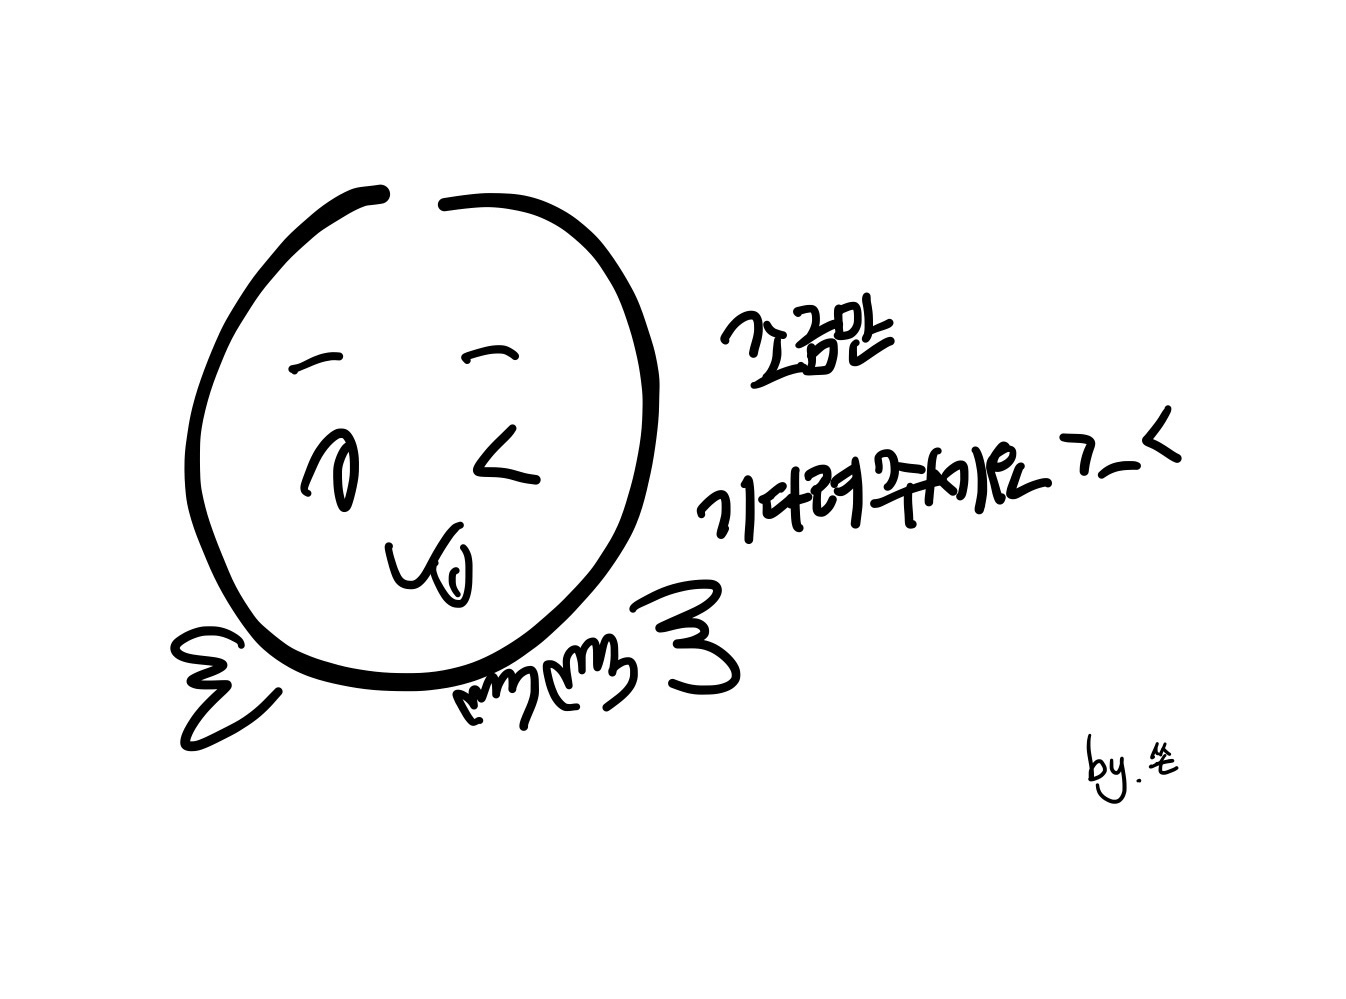 조금만
기다려주세요 >_<
by. 쏜